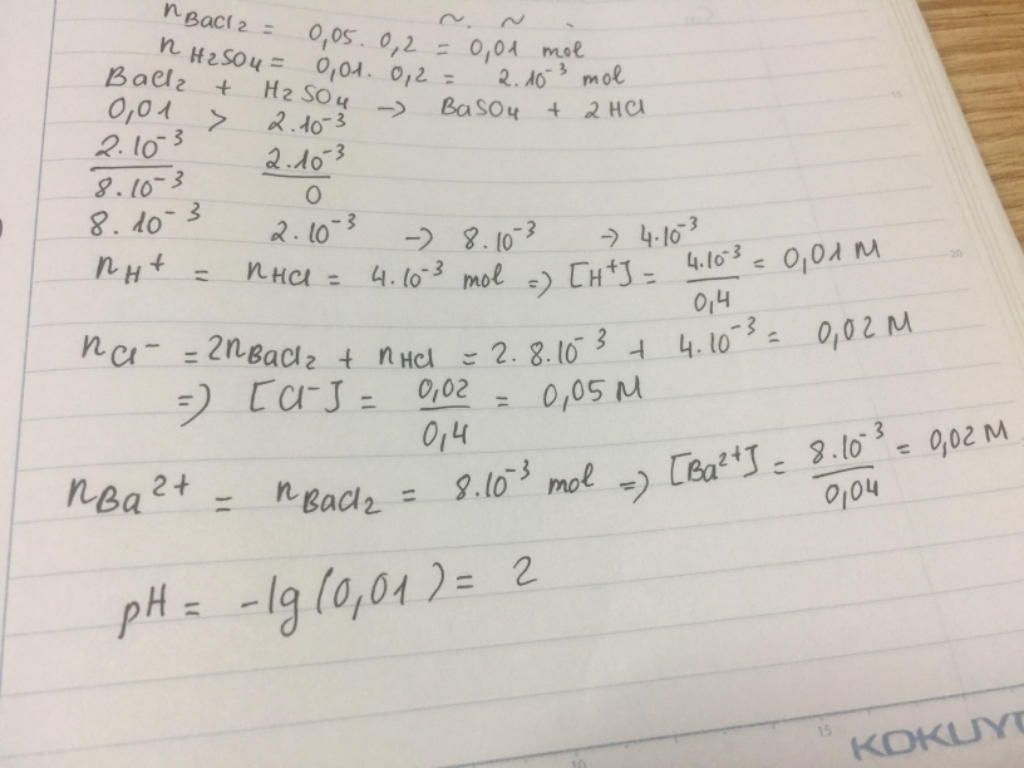 nBaCl2 = 0,05. 0,2 = 0,01 mol
nH2SO4 = 0,01. 0,2 = 2.10⁻³ mol
BaCl2 + H2SO4 → BaSO4 + 2HCl
0,01 > 2.10⁻³
2.10⁻³ 2.10⁻³
8.10⁻³ 0
8.10⁻³ 2.10⁻³ → 8.10⁻³ → 4.10⁻³
nH⁺ = nHCl = 4.10⁻³ mol => [H⁺] = 4.10⁻³/0,4 = 0,01 M
nCl⁻ = 2nBaCl2 + nHCl = 2.8.10⁻³ + 4.10⁻³ = 0,02 M
=> [Cl⁻] = 0,02/0,4 = 0,05 M
nBa²⁺ = nBaCl2 = 8.10⁻³ mol => [Ba²⁺] = 8.10⁻³/0,04 = 0,02 M
pH = -lg(0,01) = 2
15
20
10
15
KOKUYO